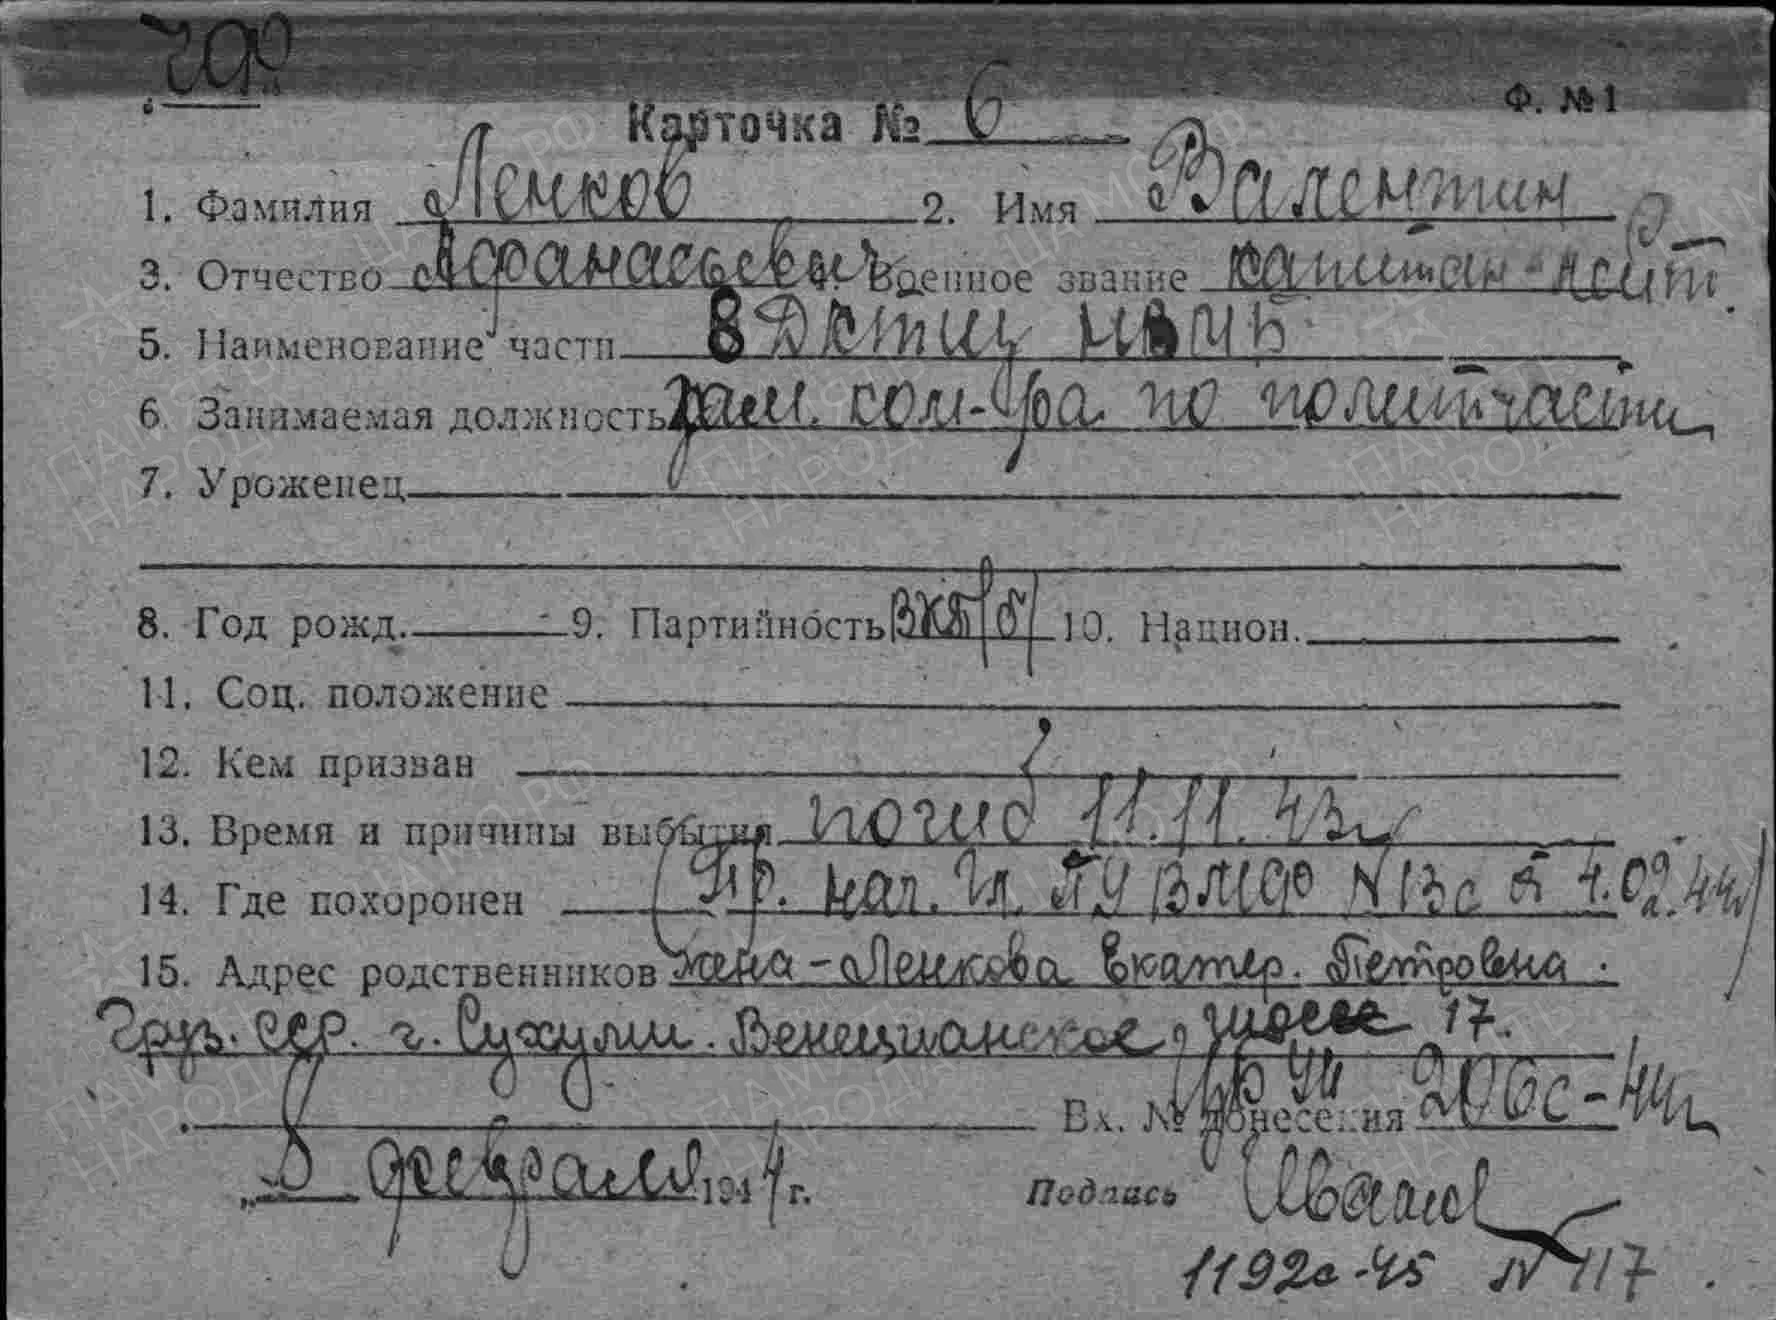 Ф. №1
Карточка № 6
1. Фамилия Ленков 2. Имя Валентин
3. Отчество Афанасьевич Военное звание капитан-лейт.
5. Наименование части 8 ДКТЩ
6. Занимаемая должность зам. ком-ра по политчасти
7. Уроженец
8. Год рожд. 9. Партийность ВКП/б/ 10. Национ.
11. Соц. положение
12. Кем призван
13. Время и причины выбытия погиб 11.11.43г.
14. Где похоронен (Пр. нач. Гл. ПУ ВМФ N 13с от 4.02.44)
15. Адрес родственников жена - Ленкова Екатер. Петровна.
Груз. ССР. г. Сухуми. Венецианское шоссе 17.
Вх. № донесения 206с-44г
„8 февраля 1944 г. Подпись
1192с-45 N 117